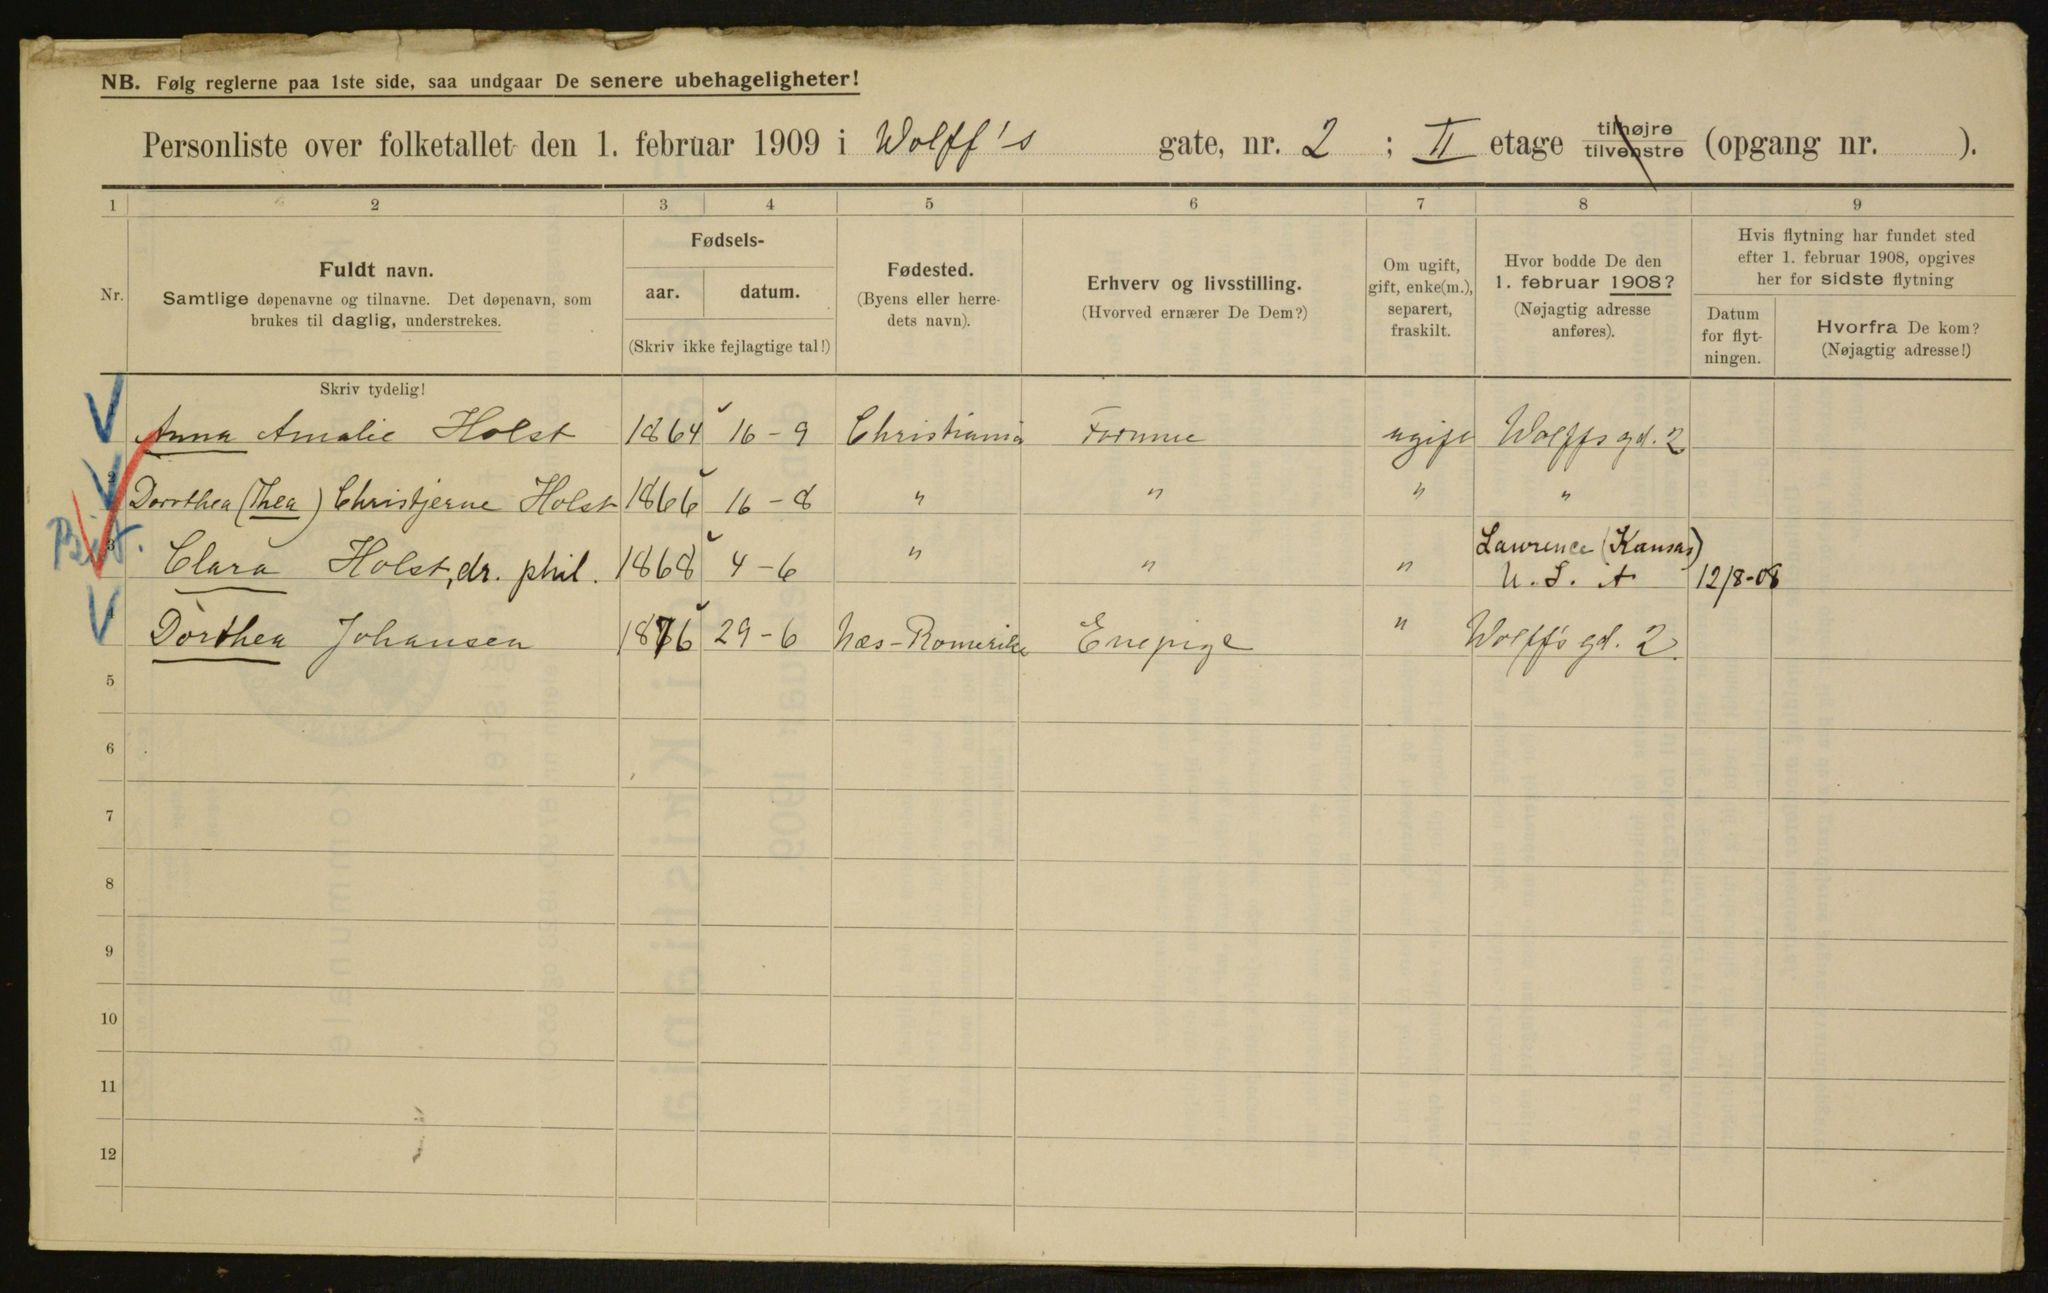 NB. Følg reglerne paa 1ste side, saa undgaar De senere ubehageligheter!
Personliste over folketallet den 1. februar 1909 i Wolff's gate, nr. 2 ; II etage tilhøjre tilvenstre (opgang nr. ).
1 2 3 4 5 6 7 8 9
Nr.
Fuldt navn.
Samtlige døpenavne og tilnavne. Det døpenavn, som
brukes til daglig, understrekes.
Fødsels-
aar. datum.
(Skriv ikke fejlagtige tal!)
Fødested.
(Byens eller herre-
dets navn).
Erhverv og livsstilling.
(Hvorved ernærer De Dem?)
Om ugift,
gift, enke(m.),
separert,
fraskilt.
Hvor bodde De den
1. februar 1908?
(Nøjagtig adresse
anføres).
Hvis flytning har fundet sted
efter 1. februar 1908, opgives
her for sidste flytning
Datum
for flyt-
ningen.
Hvorfra De kom?
(Nøjagtig adresse!)
Skriv tydelig!
Anna Amalie Holst 1864 16-9 Christiania Formue ugift Wolffs gd. 2
2 Dorothea (Thea) Christjerne Holst 1866 16-8 " " " "
3 Clara Holst, dr. phil. 1868 4-6 " " " Lawrence (Kansas) U. S. A 12/8-08
4 Dorthea Johansen 1876 29-6 Næs-Romerike Enepige " Wolff's gd. 2.
5
6
7
8
9
10
11
12